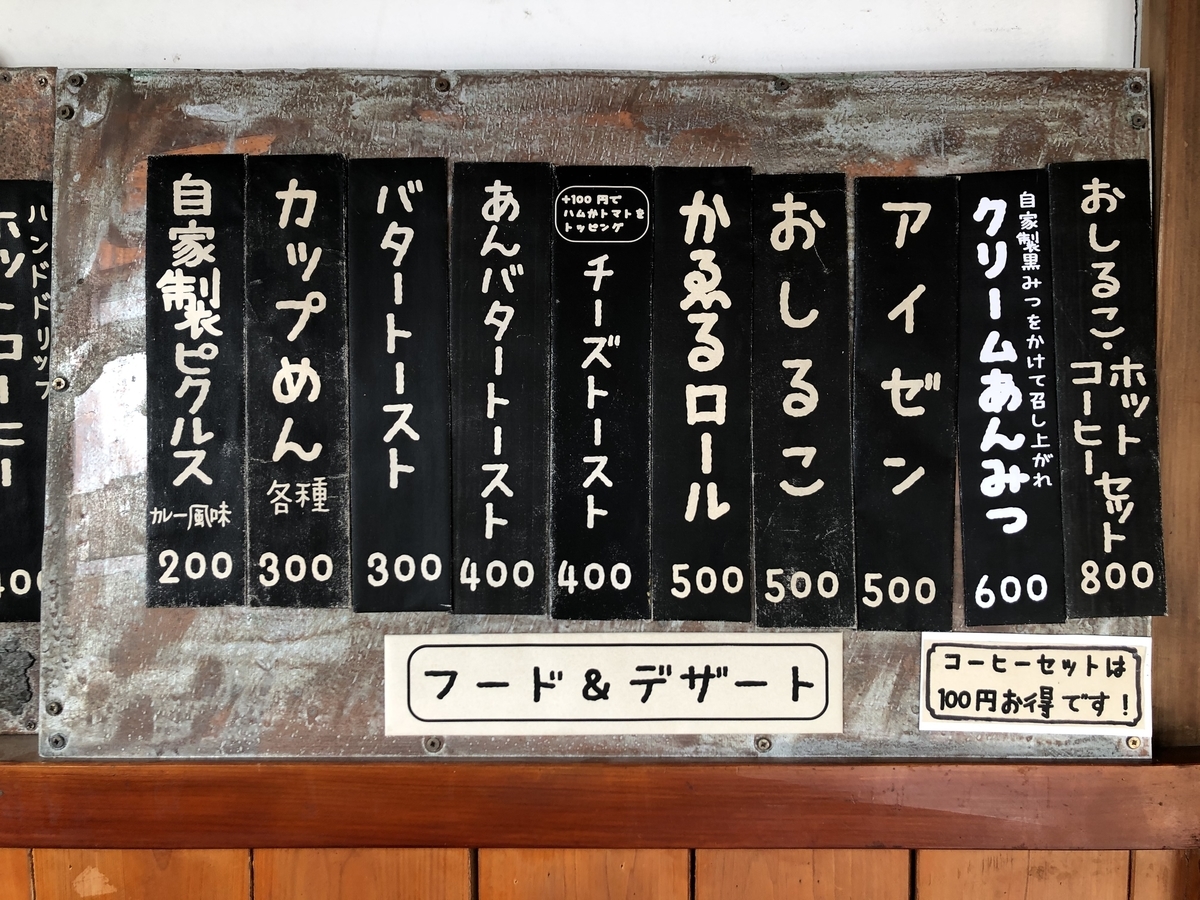 おしるこ・ホットコーヒーセット
800
自家製黒みつをかけて召し上がれ
クリームあんみつ
600
アイゼン
500
おしるこ
500
かゑるロール
500
+100円で
ハムかトマトを
トッピング
チーズトースト
400
あんバタートースト
400
バタートースト
300
カップめん
各種
300
自家製ピクルス
カレー風味
200
ハンドドリップ
ホットコーヒー
400
フード&デザート
コーヒーセットは
100円お得です!